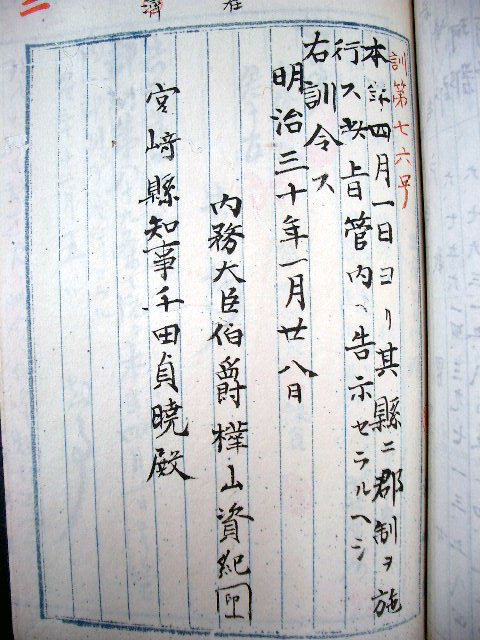 訓第七六号
本年四月一日ヨリ其縣ニ郡制ヲ施
行ス此旨管内ヘ告示セラルヘシ
右訓令ス
明治三十年一月廿八日
内務大臣伯爵樺山資紀印
宮﨑縣知事千田貞暁殿